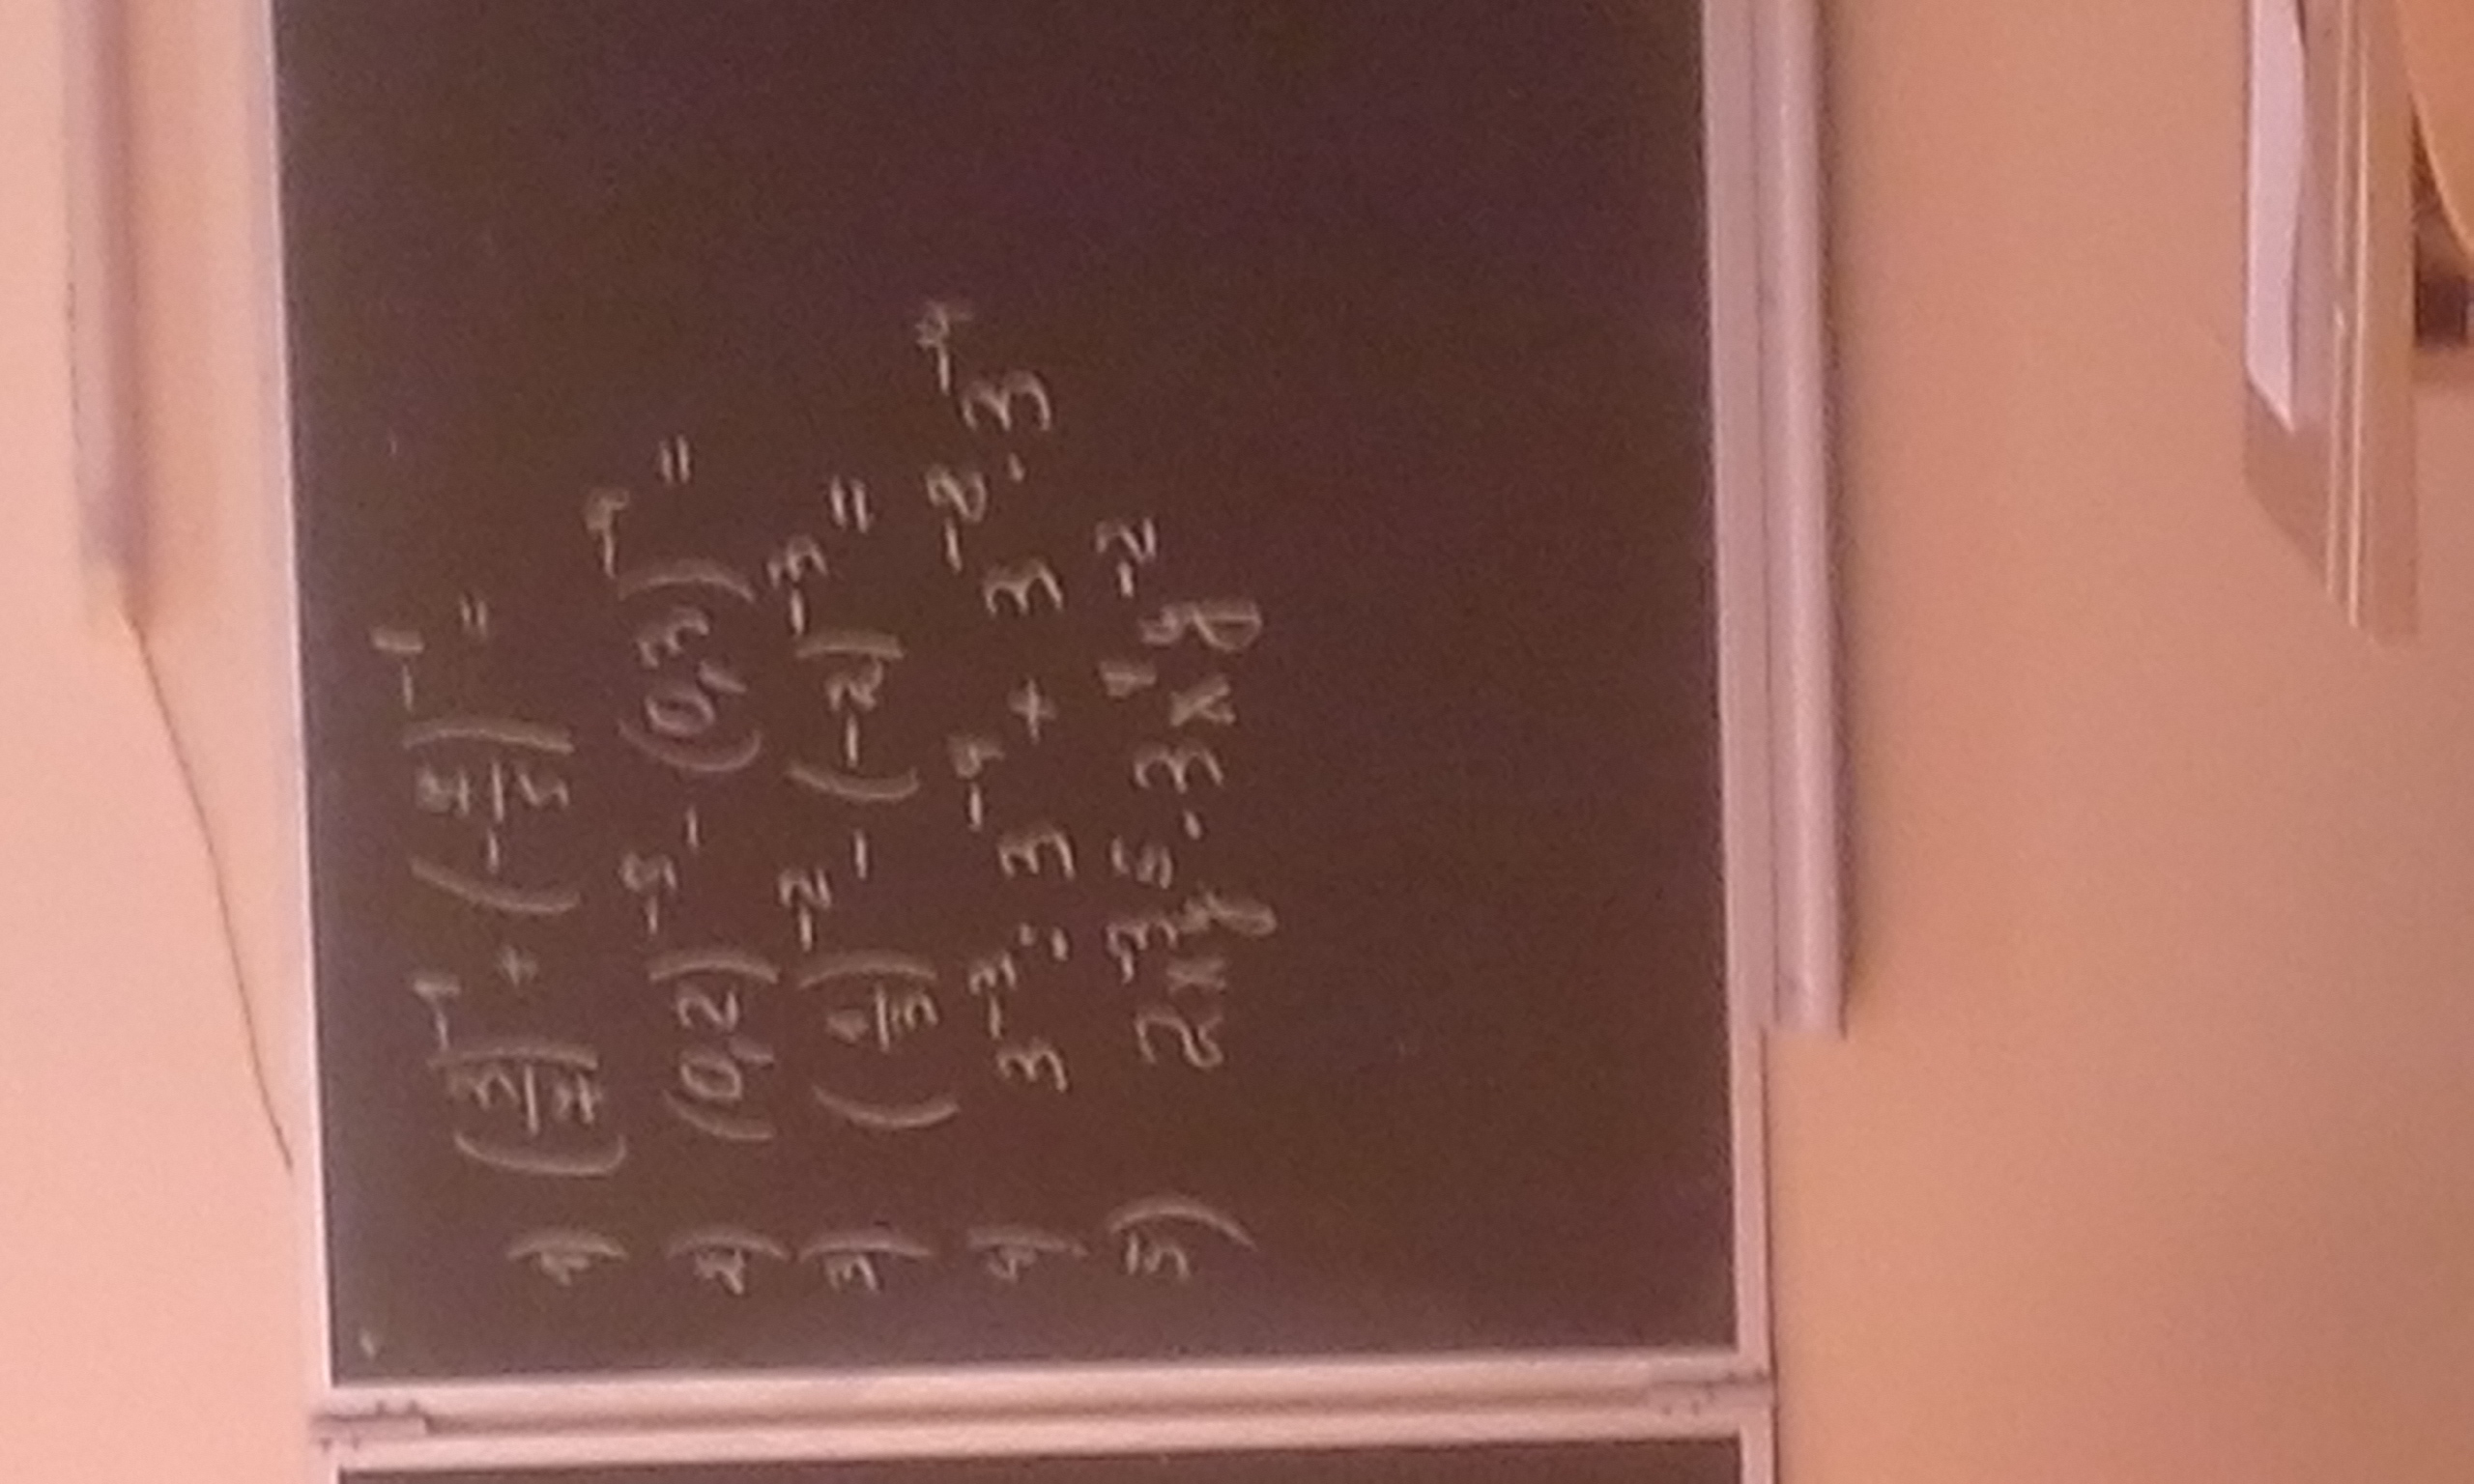 1) (3/4)⁻¹ + (-4/3)⁻¹ =
2) (0,2)⁻⁴ - (0,3)⁻¹ =
3) (1/5)⁻² - (-2)⁻³ =
4) 3⁻³ : 3⁻⁴ + 3⁻² · 3⁻¹
5) 2x⁻³y⁵ · 3x⁴y⁻²